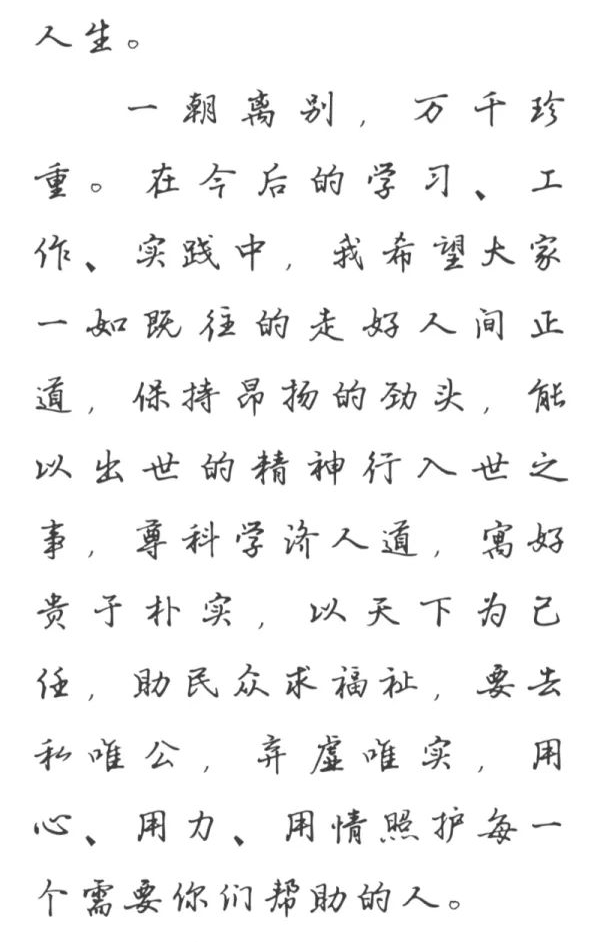 人生。
一朝离别，万千珍
重。在今后的学习、工
作、实践中，我希望大家
一如既往的走好人间正
道，保持昂扬的劲头，能
以出世的精神行入世之
事，尊科学济人道，寓好
贵于朴实，以天下为己
任，助民众求福祉，要去
私唯公，弃虚唯实，用
心、用力、用情照护每一
个需要你们帮助的人。